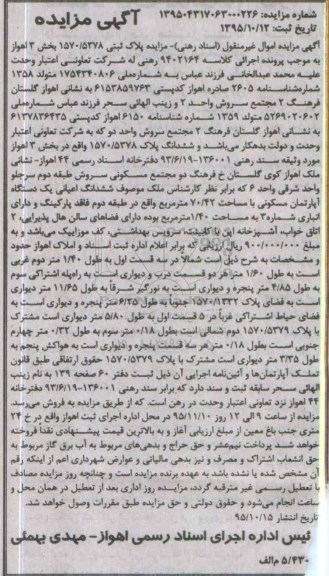 شماره مزایده: ۱۳۹۵۰۴۳۱۷۰۶۳۰۰۰۲۳۶
تاریخ ثبت: ۱۳۹۵/۱۰/۱۲
آگهی مزایده
آگهی مزایده اموال غیرمنقول (اسناد رهنی)- مزایده پلاک ثبتی ۱۵۷۰/۵۳۷۸ بخش ۳ اهواز
به موجب پرونده اجرائی کلاسه ۹۴۰۲۱۶۴ رهنی له شرکت تعاونی اعتبار وحدت
علیه محمد عبدالخانی فرزند عباس به شماره‌ملی ۱۷۵۴۳۴۰۸۰۶ متولد ۱۳۵۸
شماره‌شناسنامه ۲۶۰۵ صادره اهواز کدپستی ۶۱۵۳۸۵۹۷۶۳ به نشانی اهواز گلستان
فرهنگ ۲ مجتمع سروش واحد ۲ و زینب الهائی سحر فرزند عباس شماره‌ملی
۵۲۶۹۰۲۰۶۰۲ متولد ۱۳۵۹ شماره شناسنامه ۶۱۵۰ اهواز کدپستی ۶۱۳۷۸۳۶۴۳۵
به نشانی اهواز گلستان فرهنگ ۲ مجتمع سروش واحد دو که به شرکت تعاونی اعتبار
وحدت و دولت بدهکار می‌باشد و ششدانگ پلاک ۱۵۷۰/۵۳۷۸ واقع در بخش ۳ اهواز
مورد وثیقه سند رهنی ۱۳۶۰۰۱-۹۳/۶/۱۹ دفترخانه اسناد رسمی ۴۴ اهواز- نشانی
ملک اهواز کوی گلستان خ فرهنگ دو مجتمع مسکونی سروش طبقه دوم سرجلو
واحد شرقی واحد ۶ که برابر نظر کارشناس ملک موصوف ششدانگ اعیانی یک دستگاه
آپارتمان مسکونی با مساحت ۷۰/۴۲ مترمربع واقع در طبقه دوم فاقد پارکینگ و دارای
انباری شماره۳ به مساحت ۱/۴۰مترمربع بوده دارای فضاهای سالن هال پذیرایی، ۲
اتاق خواب، آشپزخانه اپن با کابینت، سرویس بهداشتی، کف موزاییک می‌باشد و به
مبلغ ۹۰۰/۰۰۰/۰۰۰ ریال ارزیابی که برابر اعلام اداره ثبت اسناد و املاک اهواز حدود
و مشخصات به شرح ذیل است شمالا در سه قسمت اول به طول ۱/۴۰ متر دوم غربی
است به طول ۱/۶۰ متر هر دو قسمت درب و دیواری است به راه‌پله اشتراکی سوم
به طول ۴/۸۵ متر پنجره و دیواری است به نورگیر شرقاً به طول ۱۱/۶۵ متر دیواری
است به فضای پلاک ۱۵۷۰/۱۳۲۲ جنوباً به طول ۶/۲۵ متر پنجره و دیواری است به
فضای حیاط اشتراکی غرباً در ۵ قسمت اول به طول ۵/۸۰ متر دیواری است مشترک
با پلاک ۱۵۷۰/۵۳۷۹ دوم شمالی است بطول ۰/۱۸ متر سوم به طول ۰/۳۲ متر چهارم
جنوبی است بطول ۰/۱۸ متر هر سه قسمت پنجره و دیواری است به هواکش پنجم به
طول ۳/۳۵ متر دیواری است مشترک با پلاک ۱۵۷۰/۵۳۷۹ حقوق ارتفاقی طبق قانون
تملک آپارتمان‌ها و آئین‌نامه اجرایی آن ذیل ثبت دفتر ۶۰ صفحه ۱۳۹ به نام زینب
الهائی سحر سابقه ثبت و سند دارد که برابر سند رهنی ۱۳۶۰۰۱-۹۳/۶/۱۹ دفترخانه
۴۴ اهواز نزد تعاونی اعتبار وحدت در رهن است. که از طریق مزایده به فروش می‌رسد.
مزایده از ساعت ۹ الی ۱۲ روز ۹۵/۱۱/۱۰ در محل اداره اجرای ثبت اهواز واقع در خ ۲۴
متری جنب باغ معین از مبلغ ارزیابی آغاز و به بالاترین قیمت پیشنهادی نقداً فروخته
خواهد شد پرداخت نیم‌عشر و حق حراج و بدهی‌های مربوط به آب برق گاز مربوط به
حق انشعاب اشتراک و مصرف و نیز بدهی مالیاتی و عوارض شهرداری اعم از اینکه رقم
آن مشخص شده یا نشده باشد به عهده برنده مزایده است و چنانچه روز مزایده مصادف
با تعطیل رسمی غیر مترقبه گردد، مزایده روز اداری بعد از تعطیل در همان محل و
ساعت انجام می‌شود و حقوق دولتی و حق مزایده طبق مقررات وصول خواهد شد.
تاریخ انتشار ۹۵/۱۰/۱۵
رئیس اداره اجرای اسناد رسمی اهواز- مهدی بهمئی
۵/۴۳۰ م/الف